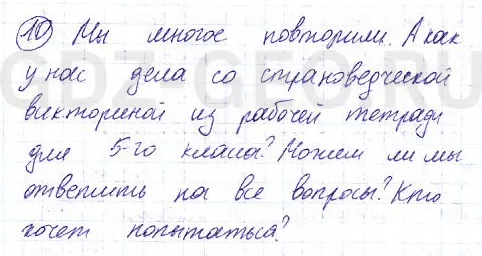 10 Мы многое повторили. А как
у нас дела со страноведческой
викториной из рабочей тетради
для 5-го класа? Можем ли мы
ответить на все вопросы? Кто
хочет попытаться?